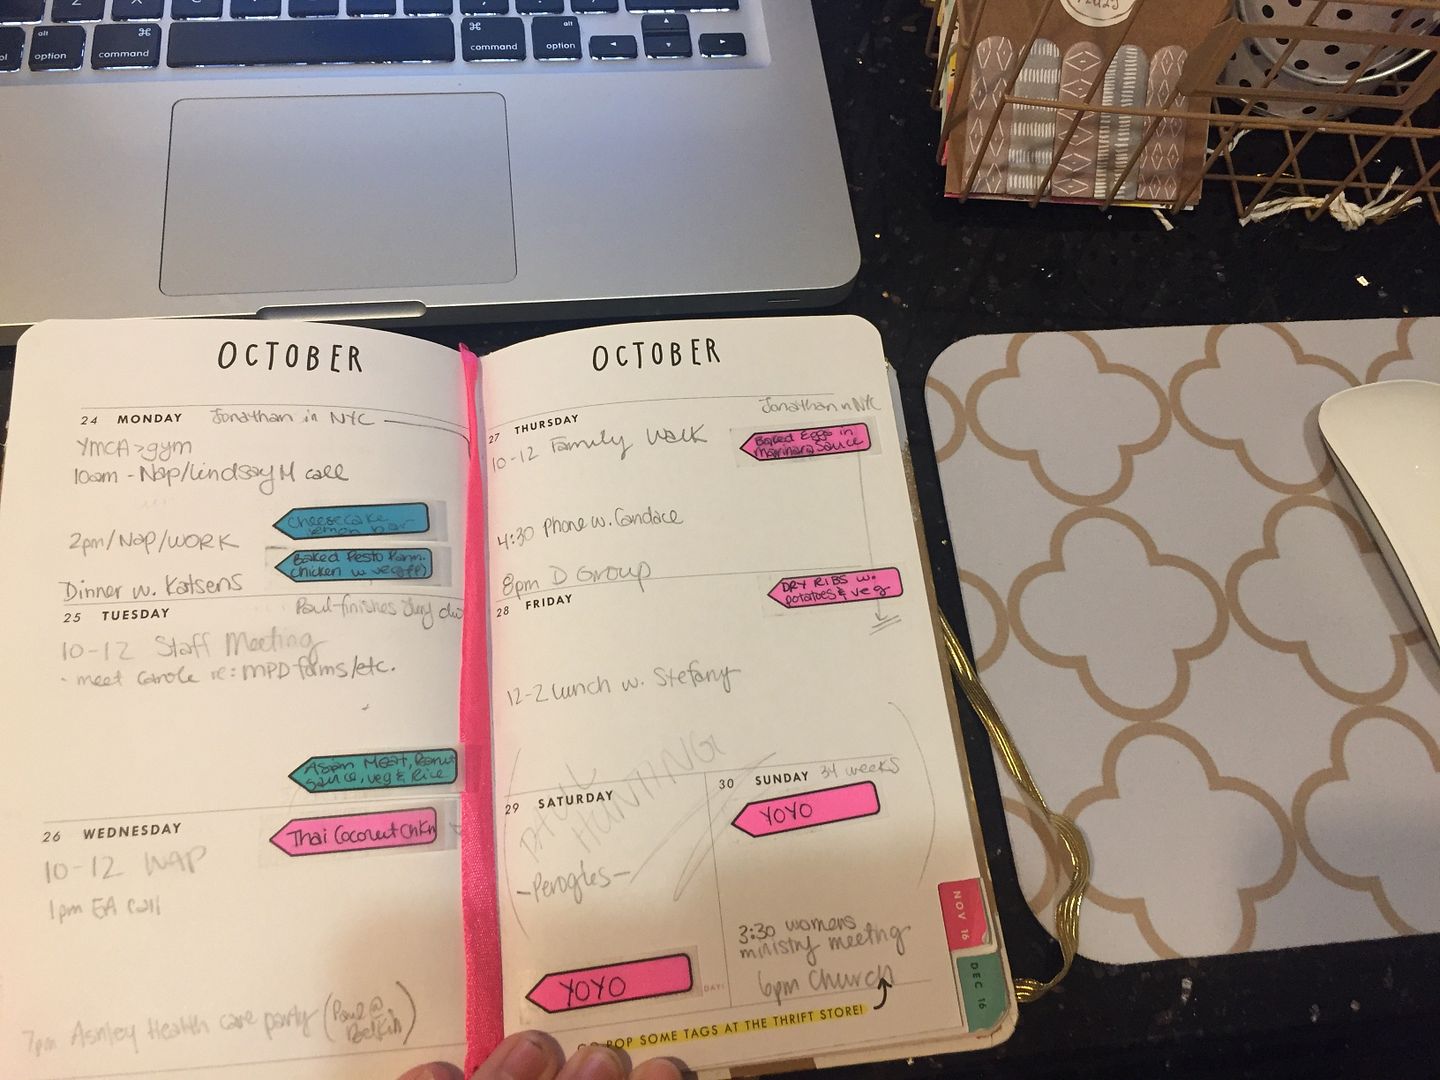 Z
X
C
V
B
N
M
alt
option
⌘
command
⌘
command
alt
option
OCTOBER
24 MONDAY Jonathan in NYC
YMCA > gym
10am - Nap/Lindsay M call
cheesecake
lemon bar
2pm/Nap/WORK
Baked Pesto Parm.
chicken w veg
Dinner w. Katsens
25 TUESDAY Paul-finishes
10-12 Staff Meeting
- meet Carole re: MPD forms/etc.
Asian Meat, Peanut
sauce, veg & Rice
26 WEDNESDAY
Thai Coconut Chkn
10-12 NAP
1pm EA Call
7pm Ashley Health care party (Paul @
OCTOBER
27 THURSDAY Jonathan in NYC
10-12 Family Walk
Baked Eggs in
Marinara Sauce
4:30 phone w. Candace
8pm D Group
28 FRIDAY
DRY RIBS w.
potatoes & veg
12-2 lunch w. Stefany
PAUL
HUNTING
29 SATURDAY
-Perogies-
YOYO
30 SUNDAY 34 weeks
YOYO
3:30 womens
ministry meeting
6pm Church
GO POP SOME TAGS AT THE THRIFT STORE!
NOV 16
DEC 16